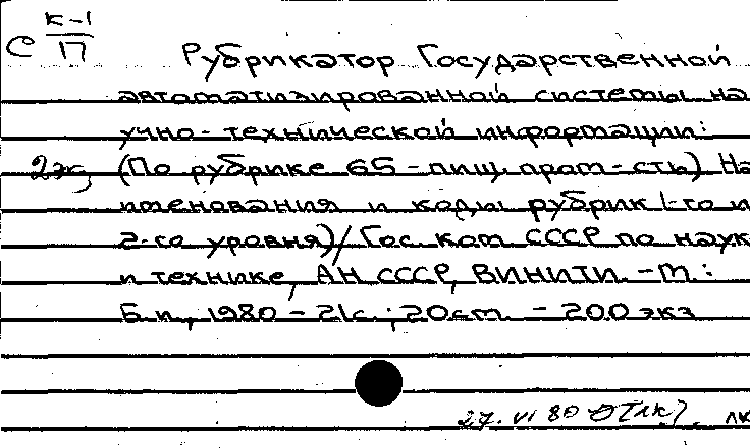 С К-1
П
Рубрикатор Государственной
автоматизированной системы на
учно-технической информации:
2ж, (По рубрике 65 - пищ. пром-сть) На
именования и коды рубрик 1-го и
2-го уровня) / Гос. ком. СССР по наук
и технике, АН СССР, ВИНИТИ. - М.:
Б.и., 1980 - 21с.; 20см. - 200 экз
27. VI 80